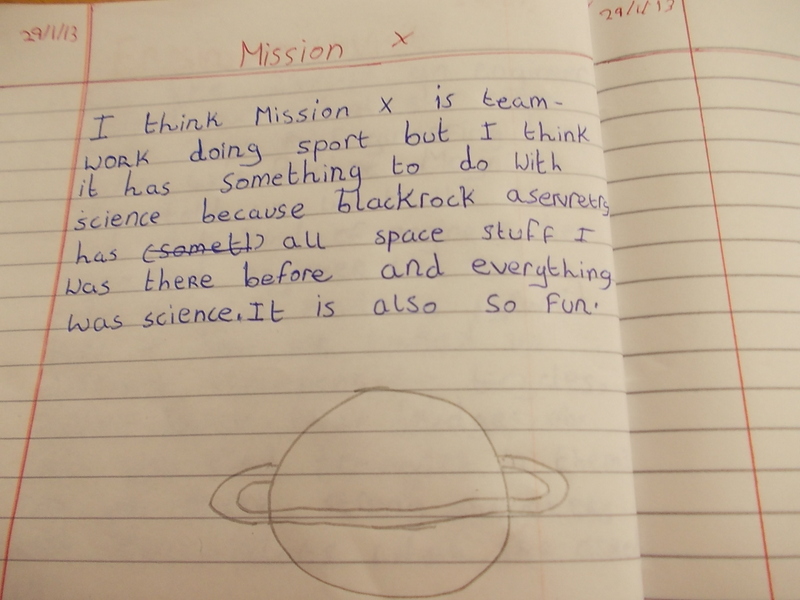 29/1/13
29/1/13
Mission X
I think Mission X is team-
work doing sport but I think
it has something to do with
science because blackrock aservretry
has (sometl) all space stuff I
was there before and everything
was science. It is also so fun.